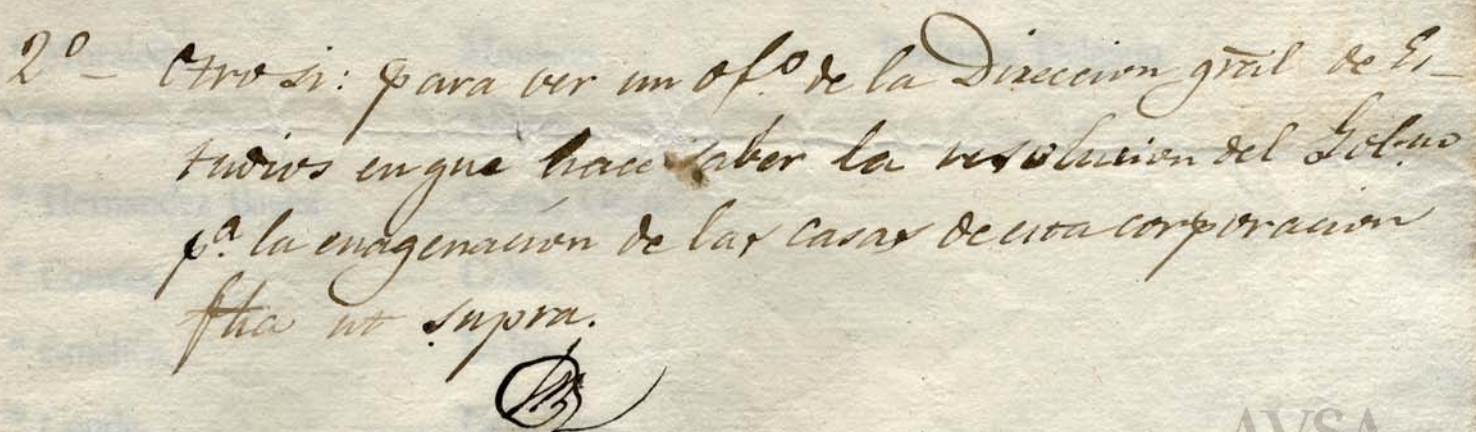 2º - Otro si: para ver un ofº de la Direccion gral de Es-
tudios en que hace saber la resolucion del Gobno
pª. la enagenación de las casas de esta corporacion
fha ut supra.
AVSA